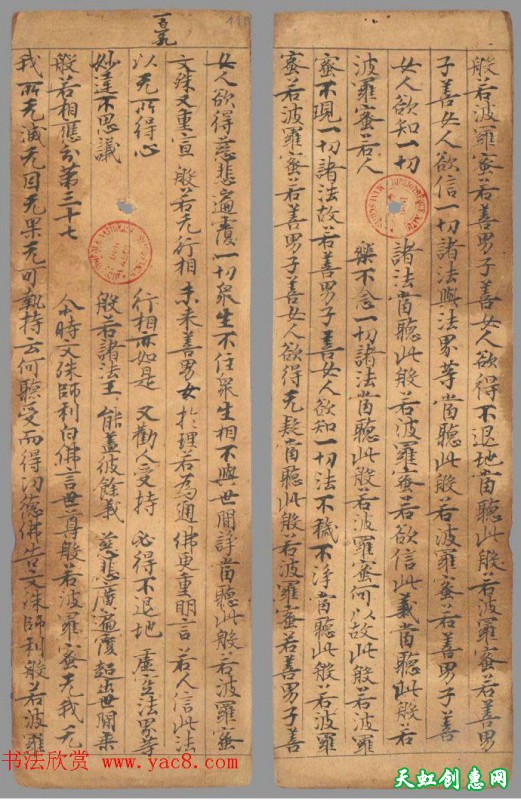 般若波羅蜜若善男子善女人欲得不退地當聽此般若波羅蜜若善男
子善女人欲信一切諸法與法界等當聽此般若波羅蜜若善男子善
女人欲知一切諸法當聽此般若波羅蜜若欲信此義當聽此般若
波羅蜜若人樂不念一切諸法當聽此般若波羅蜜何以故此般若波羅
蜜不現一切諸法故若善男子善女人欲知一切法不穢不淨當聽此般若波羅
蜜若善男子善女人欲得无疑當聽此般若波羅蜜若善男子善
女人欲得慈悲遍覆一切衆生不住衆生相不與世間諍當聽此般若波羅蜜
文殊又重宣 般若无行相 未来善男女 於理若為通 佛更重明言 若人信此法
以无所得心 行相亦如是 又勸人受持 必得不退地 虛空法界等
妙達不思議 般若諸法王 能蓋彼餘義 慈悲廣遍覆 超出世間來
般若相應分第三十七 尒時文殊師利白佛言世尊般若波羅蜜无我无
我所无滅无因无果无可執持云何聽受而得功德佛告文殊師利般若波羅
书法欣赏
www.yac8.com
天虹创意网